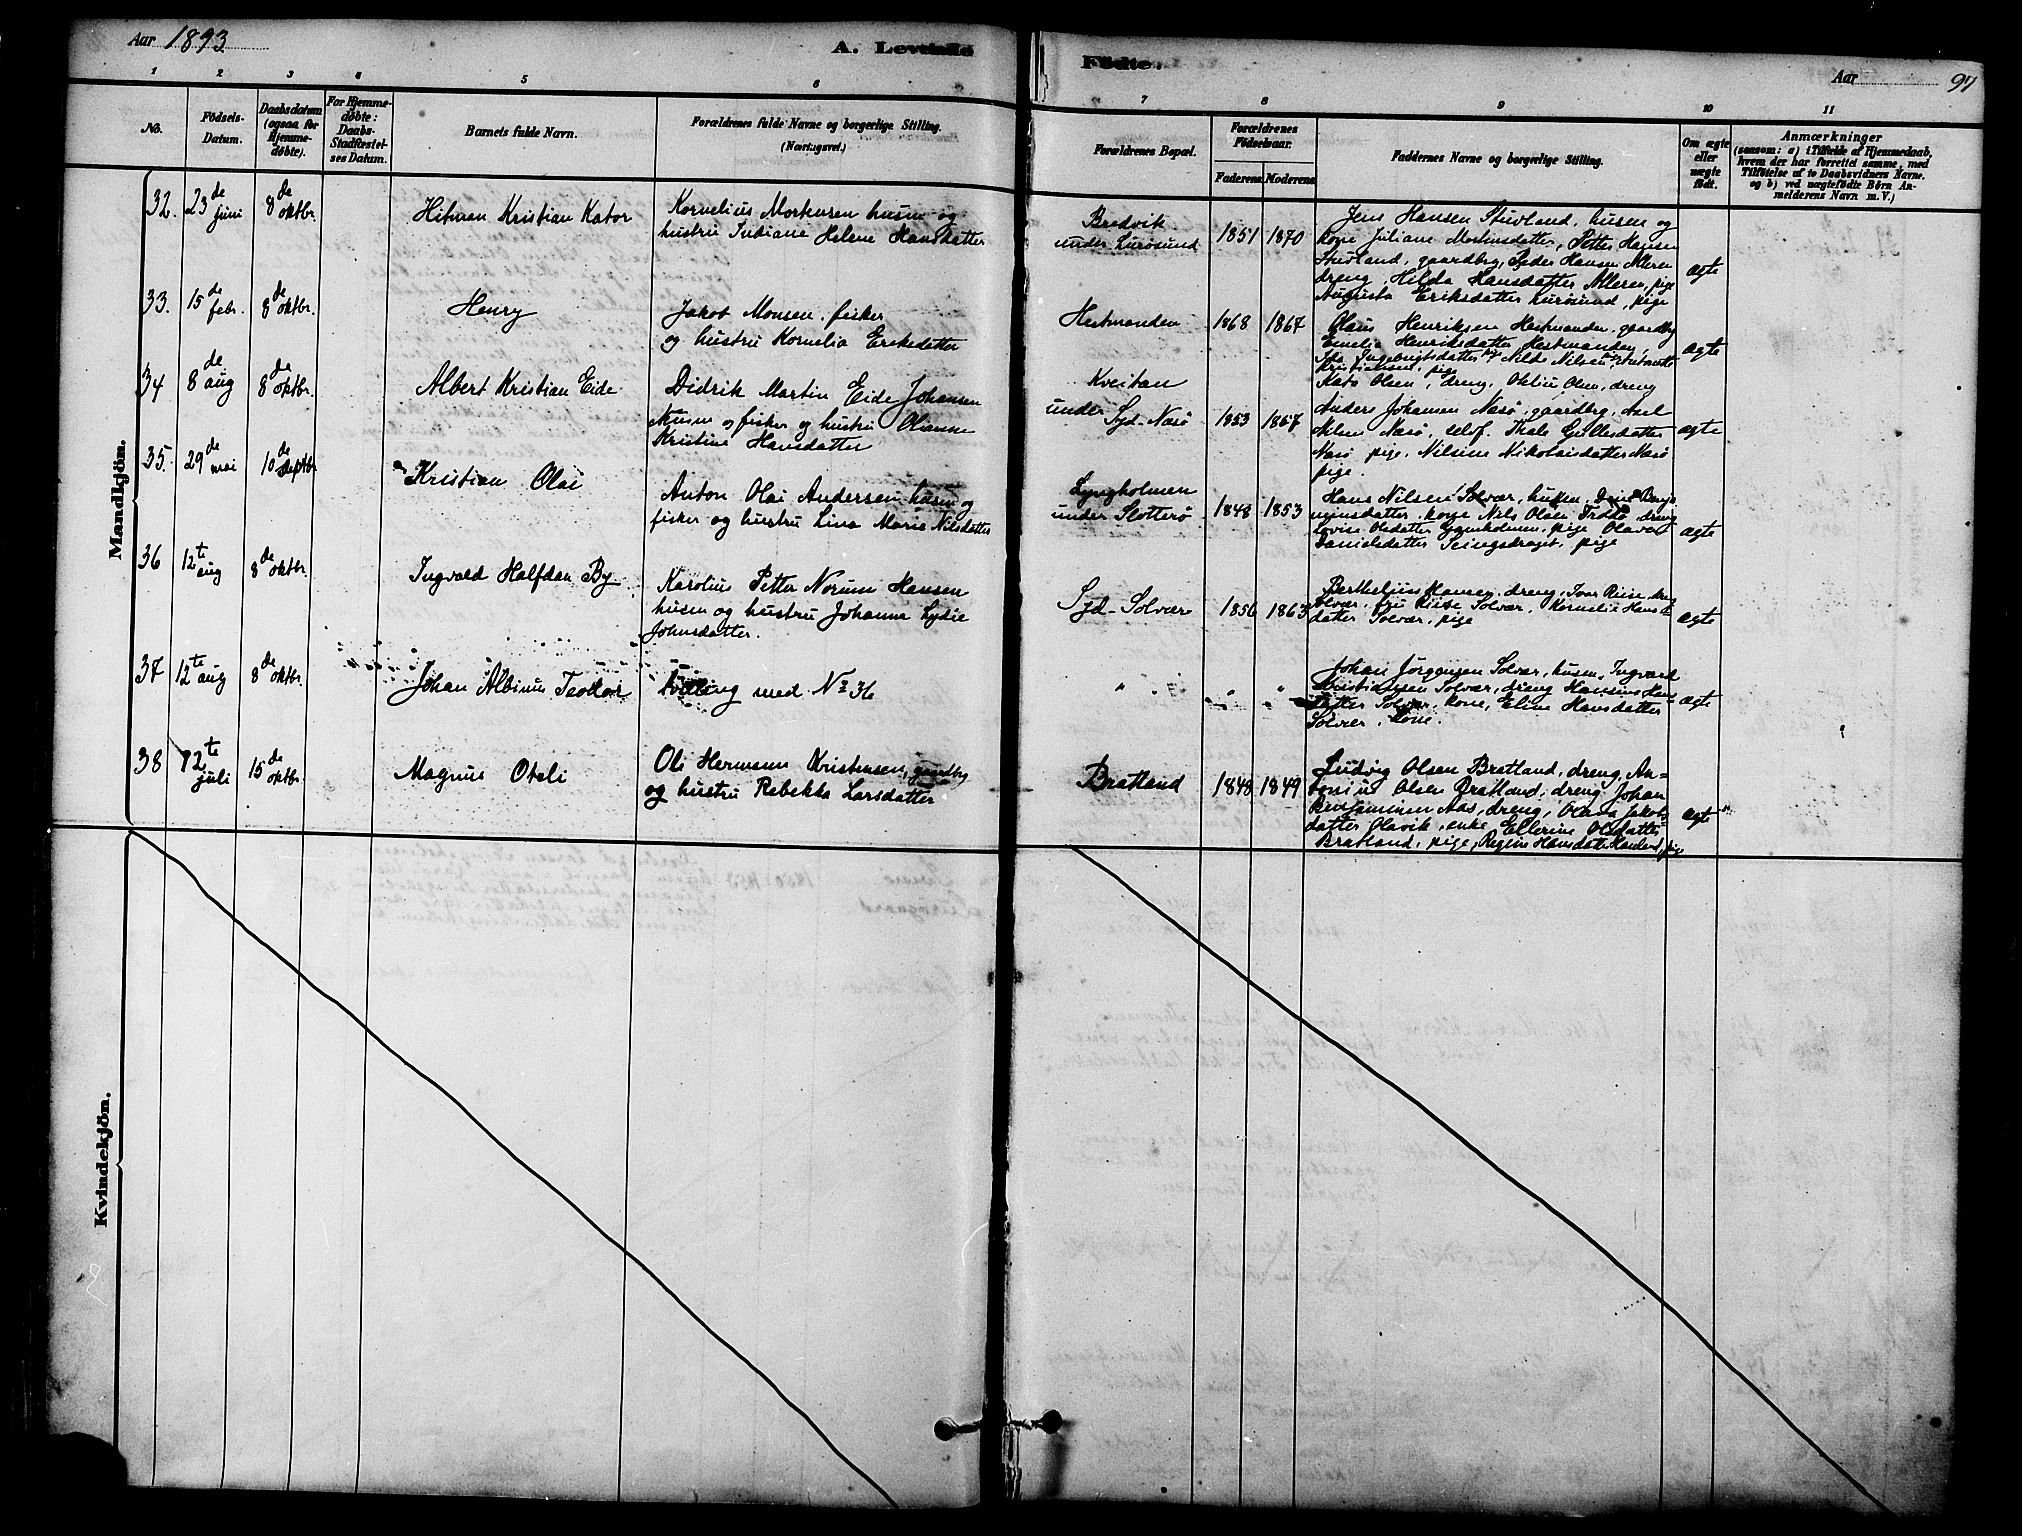 Aar 1893
A. Levende
Födte.
Aar
97
1 2 3 4 5 6 7 8 9 10 11
No.
Födsels-
Datum.
Daabsdatum
(ogsaa for
Hjemme-
döbte).
For Hjemme-
döbte:
Daabs-
Stadfæstel-
ses Datum.
Barnets fulde Navn.
Forældrenes fulde Navne og borgerlige Stilling.
(Næringsvei.)
Forældrenes Bopæl.
Forældrenes
Födselsaar.
Faderens. Moderens.
Faddernes Navne og borgerlige Stilling.
Om ægte
eller
uægte
födt.
Anmærkninger
(saasom: a) i Tilfælde af Hjemmedaab,
hvem der har forrettet samme, med
Tilföielse af to Daabsvidners Navne.
og b) ved uægtefödte Börn An-
melderens Navn m. V.)
Mandkjön.
32. 23de juni
8de oktbr.
Hitman Kristian Kator
Kornelius Mortensen husm og
hustru Indiane Helene Hansdatter
Bredvik
under Lurösund
1851 1870
Jens Hansen Stuvland, husm og
kone Juliane Mortensdatter, Petter Hansen
Stuvland, gaardbrg, Peder Hansen
dreng, Hilda Hansdatter pige
Augusta Eriksdatter Lurösund, pige
ægte
33. 15de febr.
8de oktbr.
Henry
Jakob Monsen, fisker
og hustru Kornelia Eriksdatter
Hestmanden
1868 1867
Olaus Henriksen Hestmanden, gaardbrg
Emelie Henriksdatter Hestmanden,
Ida Ingebrigtsdatter Nilsen
Kristiansen, pige
ægte
34 8de aug
8de oktbr.
Albert Kristian Eide
Didrik Martin Eide Johansen
Husm og fisker og hustru Olianne
Kristine Hansdatter
Kveitan
under Syd-Næsö
1853 1857
Kato Olsen, dreng, Otelie Olsen, dreng
Anders Johansen Næsö, gaardbrg, Axel
Nilsen Næsö, selvf. Thale Gjellesdatter
Næsö pige, Nilsine Nikolaisdatter Næsö
pige.
ægte
35. 29de mai
10de septbr
Kristian Olai
Anton Olai Andersen, husm og
fisker og hustru Lina Marie Nilsdatter
Lyngholmen
under Slotterö
1848 1853
Hans Nilsen Solvær, husm,
kone Nils Olsen dreng
Lovise Olsdatter Lyngholmen, pige Olava
Danielsdatter pige
ægte
36 12te aug
8de oktbr.
Ingvald Halfdan By
Karolius Petter Norum Hansen
husm og hustru Johanna Lydie
Johnsdatter.
Syd-Solvær
1856 1863
Berthelius Hansen, dreng, Ivar Riise,
Solvær, Riise Solvær, Kornelie Hans
datter Solvær, pige
ægte
37 12te aug
8de oktbr.
Johan Albinus Teodor
Tvilling med No 36
" " " "
Johan Jörgensen Solvær, husm, Ingvard
Kristiansen Solvær, dreng Hansine Hans
datter Solvær, kone, Eline Hansdatter
Solvær, kone.
ægte
38 12te juli
15de oktbr.
Magnus Oteli
Ole Hermann Kristensen, gaardbrg
og hustru Rebekka Larsdatter
Bratland
1848 1849
Ludvig Olsen Bratland, dreng, An-
tonius Olsen Bratland, dreng, Johan
Benjaminsen Aas, dreng, Olava Jakobs
datter Olavik, enke Ellerine Olsdatter
Bratland, pige, Regine Hansdatter pige
ægte
Kvindekjön.